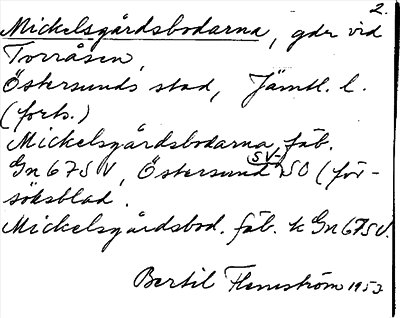 2.
Mickelsgårdsbodarna, gdr vid
Torråsen,
Östersunds stad, Jämtl. l.
(forts.)
Mickelsgårdsbodarna, fäb.
Gn 67 SV, Östersund SV-SO (för-
söksblad.
Mickelsgårdsbod. fäb. k Gn 67 SV.
Bertil Flemström 1953